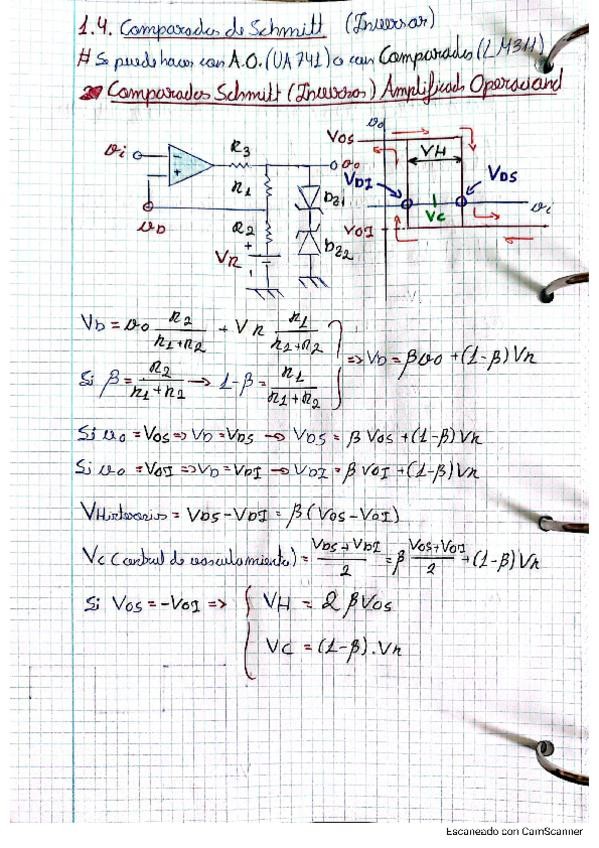 1.4. Comparador de Schmitt (Inversor)
# Se puede hacer con A.O. (UA 741) o con Comparador (LM311)
Comparador Schmitt (Inversor) Amplificador Operacional
vi
-
+
R3
R1
R2
+
VR
vD
vo
Dz1
Dz2
vo
VOS
VH
VDI
VDS
vi
Vc
VOI
VD = vo R2/(R1+R2) + VR R1/(R1+R2)
=> VD = β vo + (1-β) VR
Si β = R2/(R1+R2) → 1-β = R1/(R1+R2)
Si vo = VOS => VD = VDS → VDS = β VOS + (1-β) VR
Si vo = VOI => VD = VDI → VDI = β VOI + (1-β) VR
VHisteresis = VDS - VDI = β (VOS - VOI)
Vc (central de vasculamiento) = (VDS + VDI)/2 = β (VOS + VOI)/2 + (1-β) VR
Si VOS = -VOI => { VH = 2 β VOS
VC = (1-β) . VR
Escaneado con CamScanner